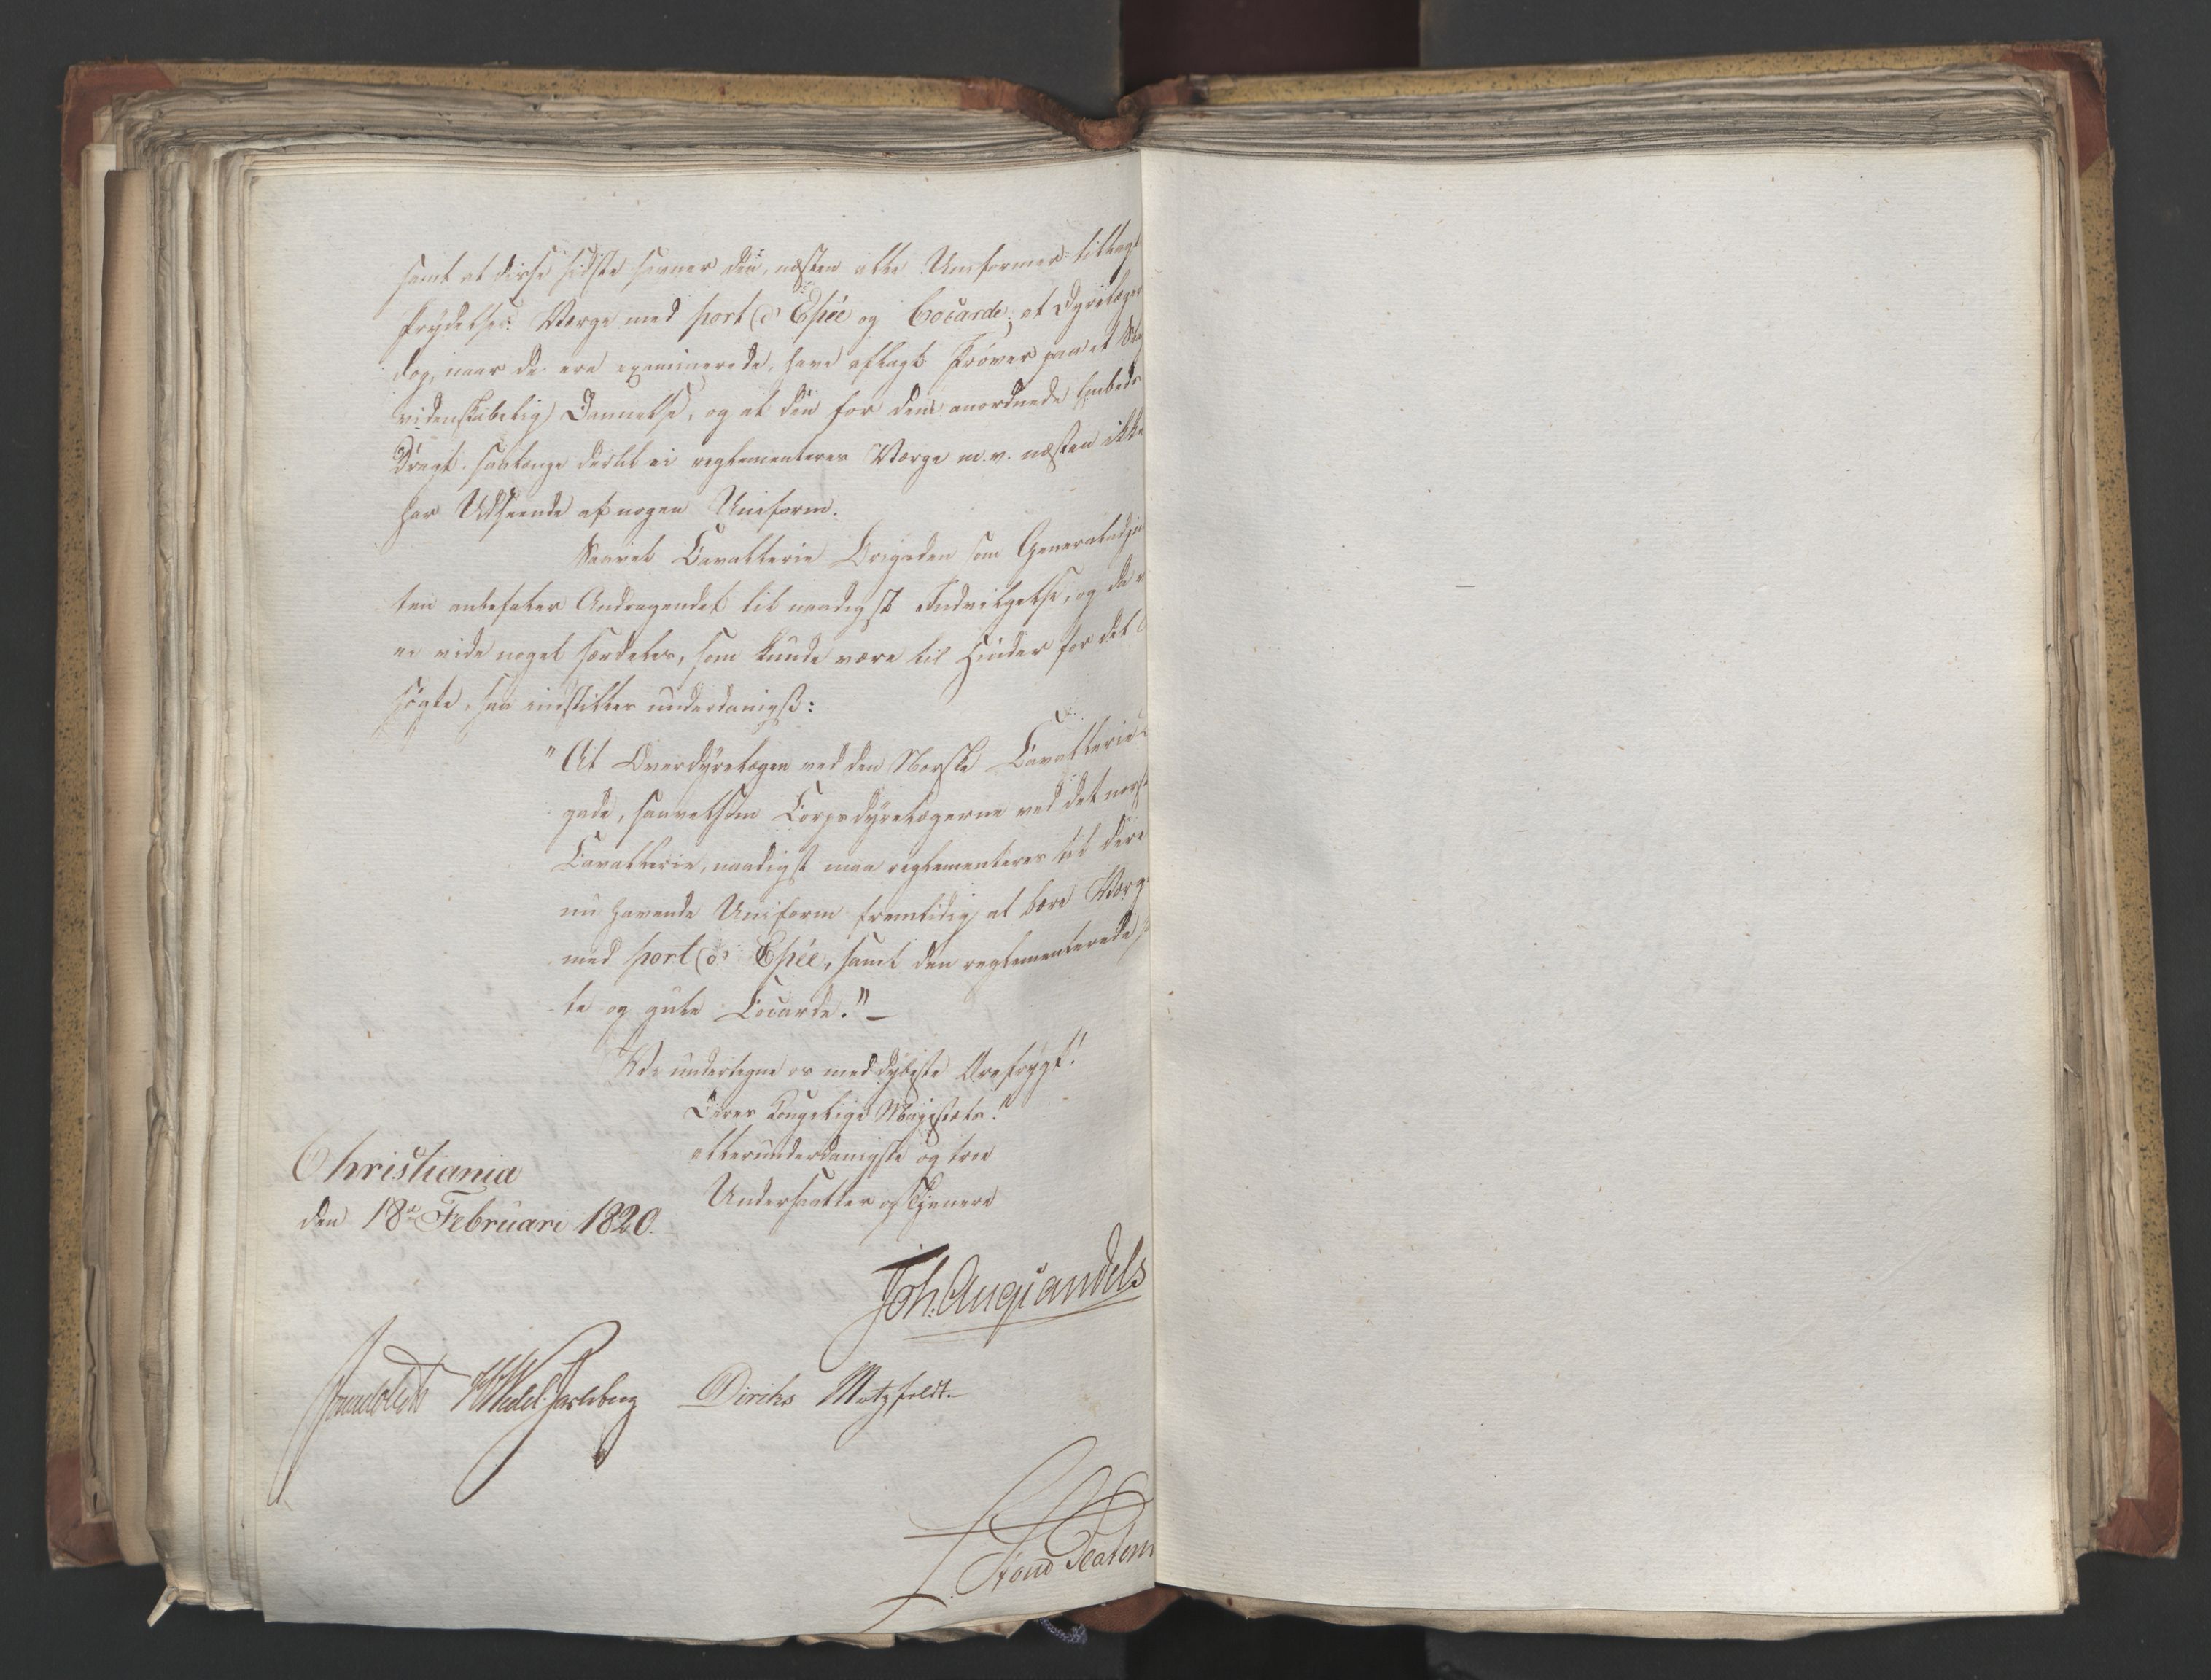 samt at disse sidste savner den, næsten alle Uniformer tillagt
Prydelse: Værge med port d' Epée og Cocarde; at Dyrelæger
dog, naar de ere examinerede, have aflagt Prøver paa et
videnskabelig Dannelse, og at den for dem anordnede Embeds
Dragt, saalænge dertil ei reglementeres Værge m. v. næsten ikke
har Udseende af nogen Uniform.
Saavel Cavallerie Brigaden som Generaladju
ten anbefaler Andragendet til naadigst Indvilgelse, og da v
ei vide noget særdeles, som kunde være til Hinder for det
søgte, saa indstilles underdanigst:
"At Overdyrelægen ved den Norske Cavallerie
gade, saavelsom Corpsdyrelægerne ved det norske
Cavallerie, naadigst maa reglementeres til dere
nu havende Uniform fremtidig at bære Værge
med port d' Epée, samt den reglementerede
te og gule Cocarde."
Vi undertegne os med dybeste Ærefrygt!
Deres Kongelige Majestæts!
allerunderdanigste og troe
Undersaatter og Tjenere
Christiania
den 18de Februari 1820.
Joh. Aug: Sandels
Sommerhielm HWedel-Jarlsberg Diriks Motzfeldt